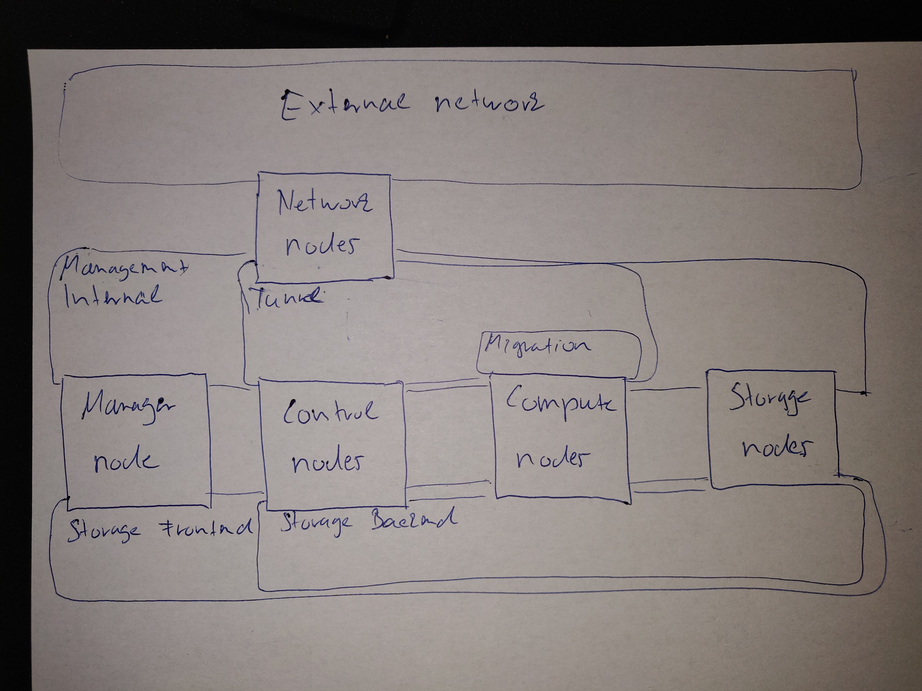 External network
Network
nodes
Management
Internal
Tunnel
Migration
Manager
node
Control
nodes
Compute
nodes
Storage
nodes
Storage Frontend
Storage Backend